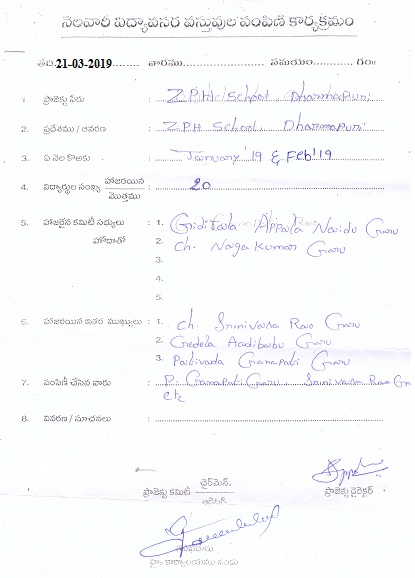 నెలవారీ విద్యావసర వస్తువుల పంపిణీ కార్యక్రమం
తేది: 21-03-2019 వారము సమయం గం॥
1. ప్రాజెక్టు పేరు : Z.P.H. School, Dharmapuri
2. ప్రదేశము / ఆవరణ : Z.P.H School, Dharmapuri
3. ఏ నెల కొఱకు : January'19 & Feb'19
4. విద్యార్థుల సంఖ్య హాజరయిన / మొత్తము : 20
5. హాజరైన కమిటీ సభ్యులు : 1. Griditala Appala Naidu Garu
హోదాతో 2. ch. Naga Kumar Garu
3.
4.
5.
6. హాజరయిన ఇతర ముఖ్యులు : 1. ch. Srinivasa Rao Garu
2. Gedela Aadibabu Garu
3. Pativada Ganapati Garu
7. పంపిణీ చేసిన వారు : P. Ganapati Garu, Srinivasa Rao Ga
etc
8. వివరణ / సూచనలు :
ప్రాజెక్టు కమిటీ చైర్‌మెన్. ప్రాజెక్టు డైరెక్టర్